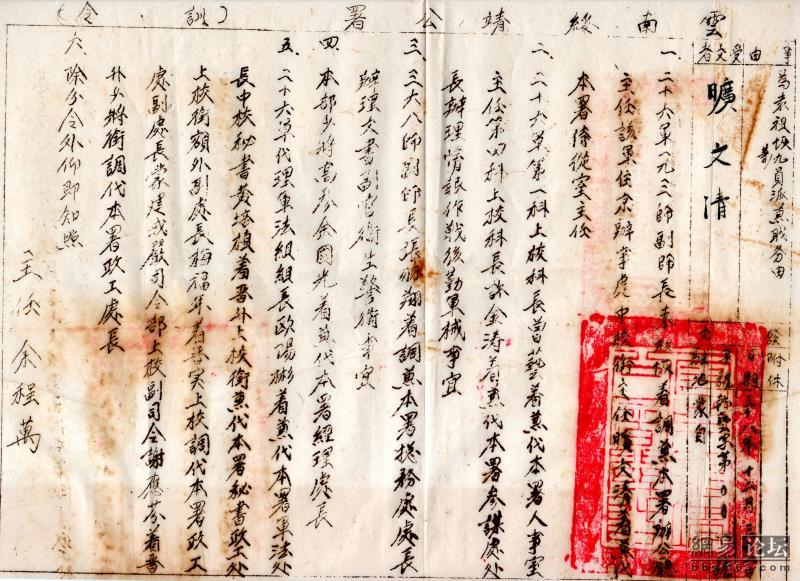 雲南綏靖公署(訓令)
事由
受文者
為表祖横等九員派兼職務由
曠文清
附件
一、二十六軍一九三師副師長表祖横着調兼本署辦公室
主任該軍住京辦事處中校銜主任曠文清着兼代
本署侍從室主任
二、二十六軍第一科上校科長曾藝着兼代本署人事室
主任第四科上校科長謀金濤着兼代本署參謀處處
長辦理情報作戰後勤軍械事宜
三、三六八師副師長張 翔着調兼本署總務處處長
辦理文書副官衛生警衛事宜
四、本部少將高參余國光着兼代本署經理處長
五、二十六軍代理軍法組組長歐陽彬着兼代本署軍法處
長中校秘書黃培楨着晋升上校銜兼代本署秘書政工處
上校銜額外副處長梅福年着 實上校調代本署政工
處副處長蒙建戒嚴司令部上校副司令謝應芬着晋
升少將銜調代本署政工處長
六、除分令外仰即知照
主任余程萬
網易 论坛
bbs.163.com